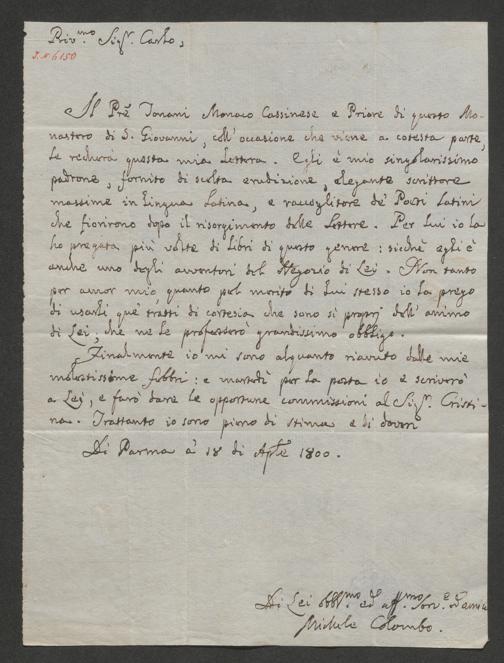 Priv.mo Sigr. Carlo,
I.N 6150
Il Pre Tonani Monaco Cassinese e Priore di questo Mo-
nastero di S. Giovanni, coll'occasione che viene a cotesta parte,
Le recherà questa mia lettera. Egli è mio singolarissimo
padrone, fornito di scelta erudizione, elegante scrittore
massime in Lingua Latina, e raccoglitore de' Poeti Latini
che fiorirono dopo il risorgimento delle Lettere. Per lui io La
ho pregata più volte di Libri di questo genere: sicchè egli è
anche uno degli avventori del Negozio di Lei. Non tanto
per amor mio quanto pel merito di lui stesso io La prego
di usarli que' tratti di cortesia che sono sì propri dell'animo
di Lei, che ne Le professerò grandissimo obbligo.
Finalmente io mi sono alquanto riavuto dalle mie
molestissime febbri: e martedì per la posta io e scriverò
a Lei, e farò dare le opportune commissioni al Sigr. Cristi-
na. Trattanto io sono pieno di stima e di doveri
Di Parma a' 18 di Aple 1800.
Di Lei obbl.mo ed aff.mo Serv.e ed amico
Michele Colombo.